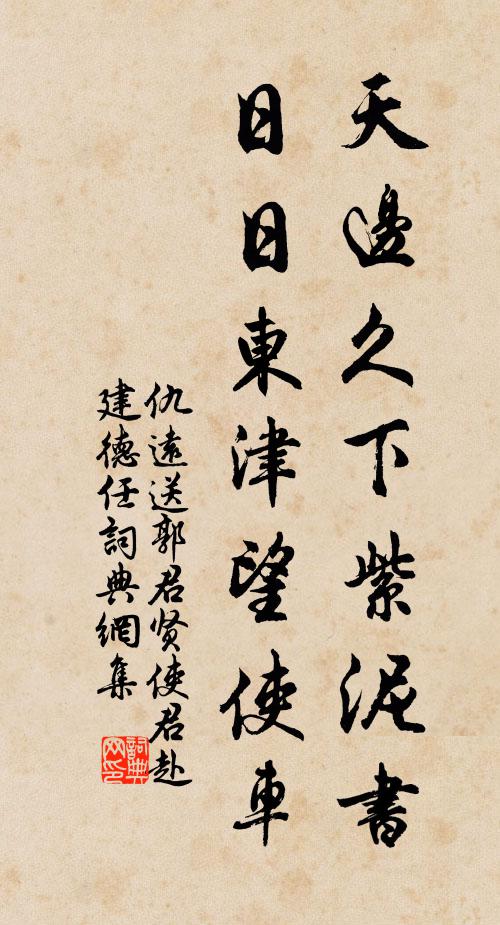 天邊久下紫泥書
日日東津望使車
仇遠送郭君贤使君赴
建德任詞典網集
詞典
网印